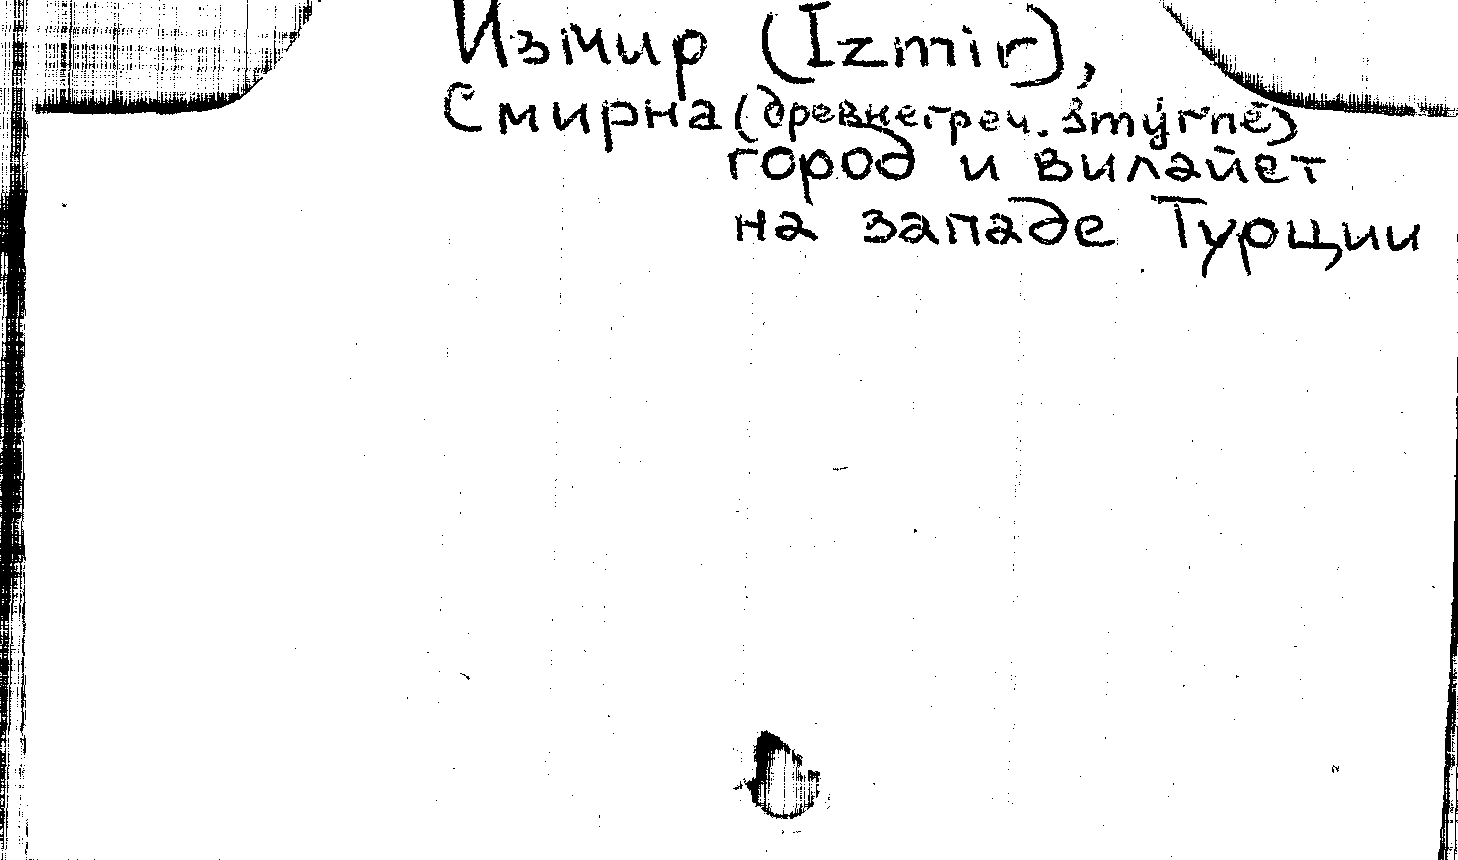 Измир (Izmir),
Смирна (древнегреч. Smýrnē)
город и вилайет
на западе Турции